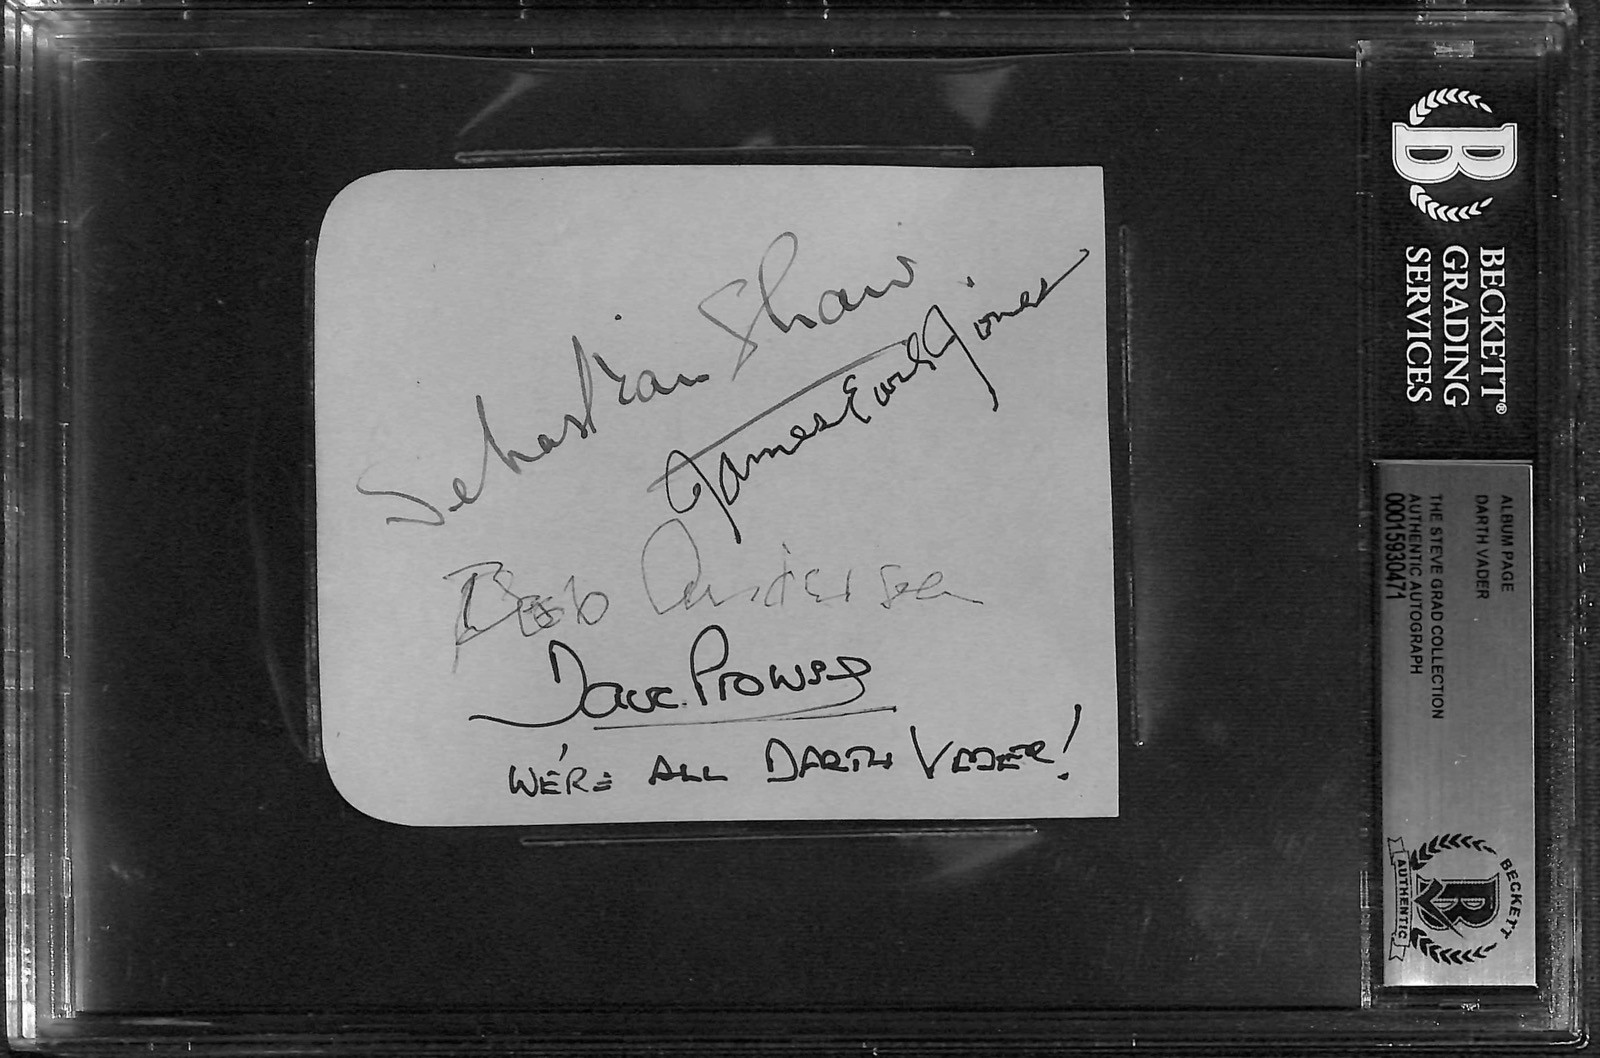 Sebastian Shaw
James Earl Jones
Bob Anderson
Dave Prowse
WE'RE ALL DARTH VADER!
B
BECKETT®
GRADING
SERVICES
ALBUM PAGE
DARTH VADER
THE STEVE GRAD COLLECTION
AUTHENTIC AUTOGRAPH
00015930471
BECKETT
B
AUTHENTIC